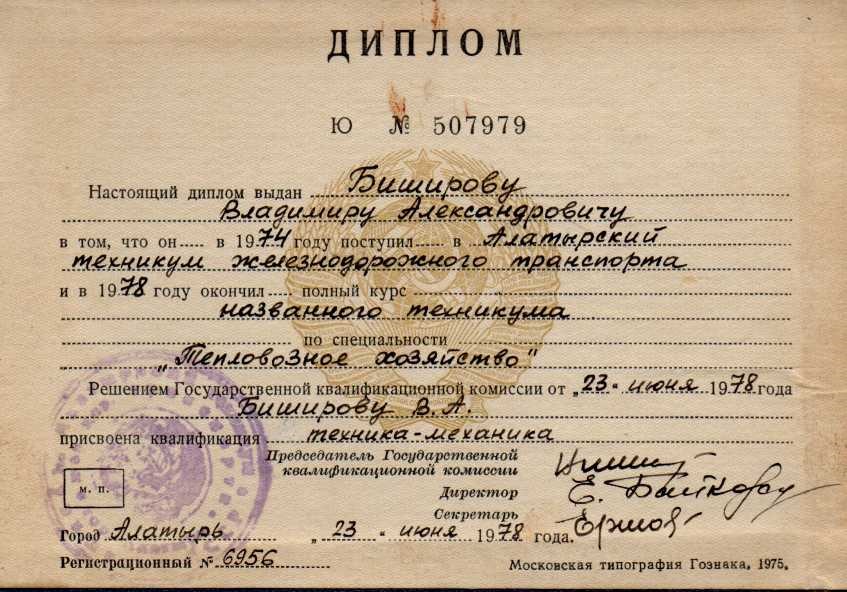 ДИПЛОМ
Ю № 507979
Настоящий диплом выдан Биширову
Владимиру Александровичу
в том, что он в 1974 году поступил в Алатырский
техникум железнодорожного транспорта
и в 1978 году окончил полный курс
названного техникума
по специальности
„Тепловозное хозяйство"
Решением Государственной квалификационной комиссии от „23" июня 1978 года
Биширову В.А.
присвоена квалификация техника-механика
Председатель Государственной
квалификационной комиссии
Директор
Секретарь
м. п.
Город Алатырь „23" июня 1978 года.
Регистрационный № 6956
Московская типография Гознака. 1975.